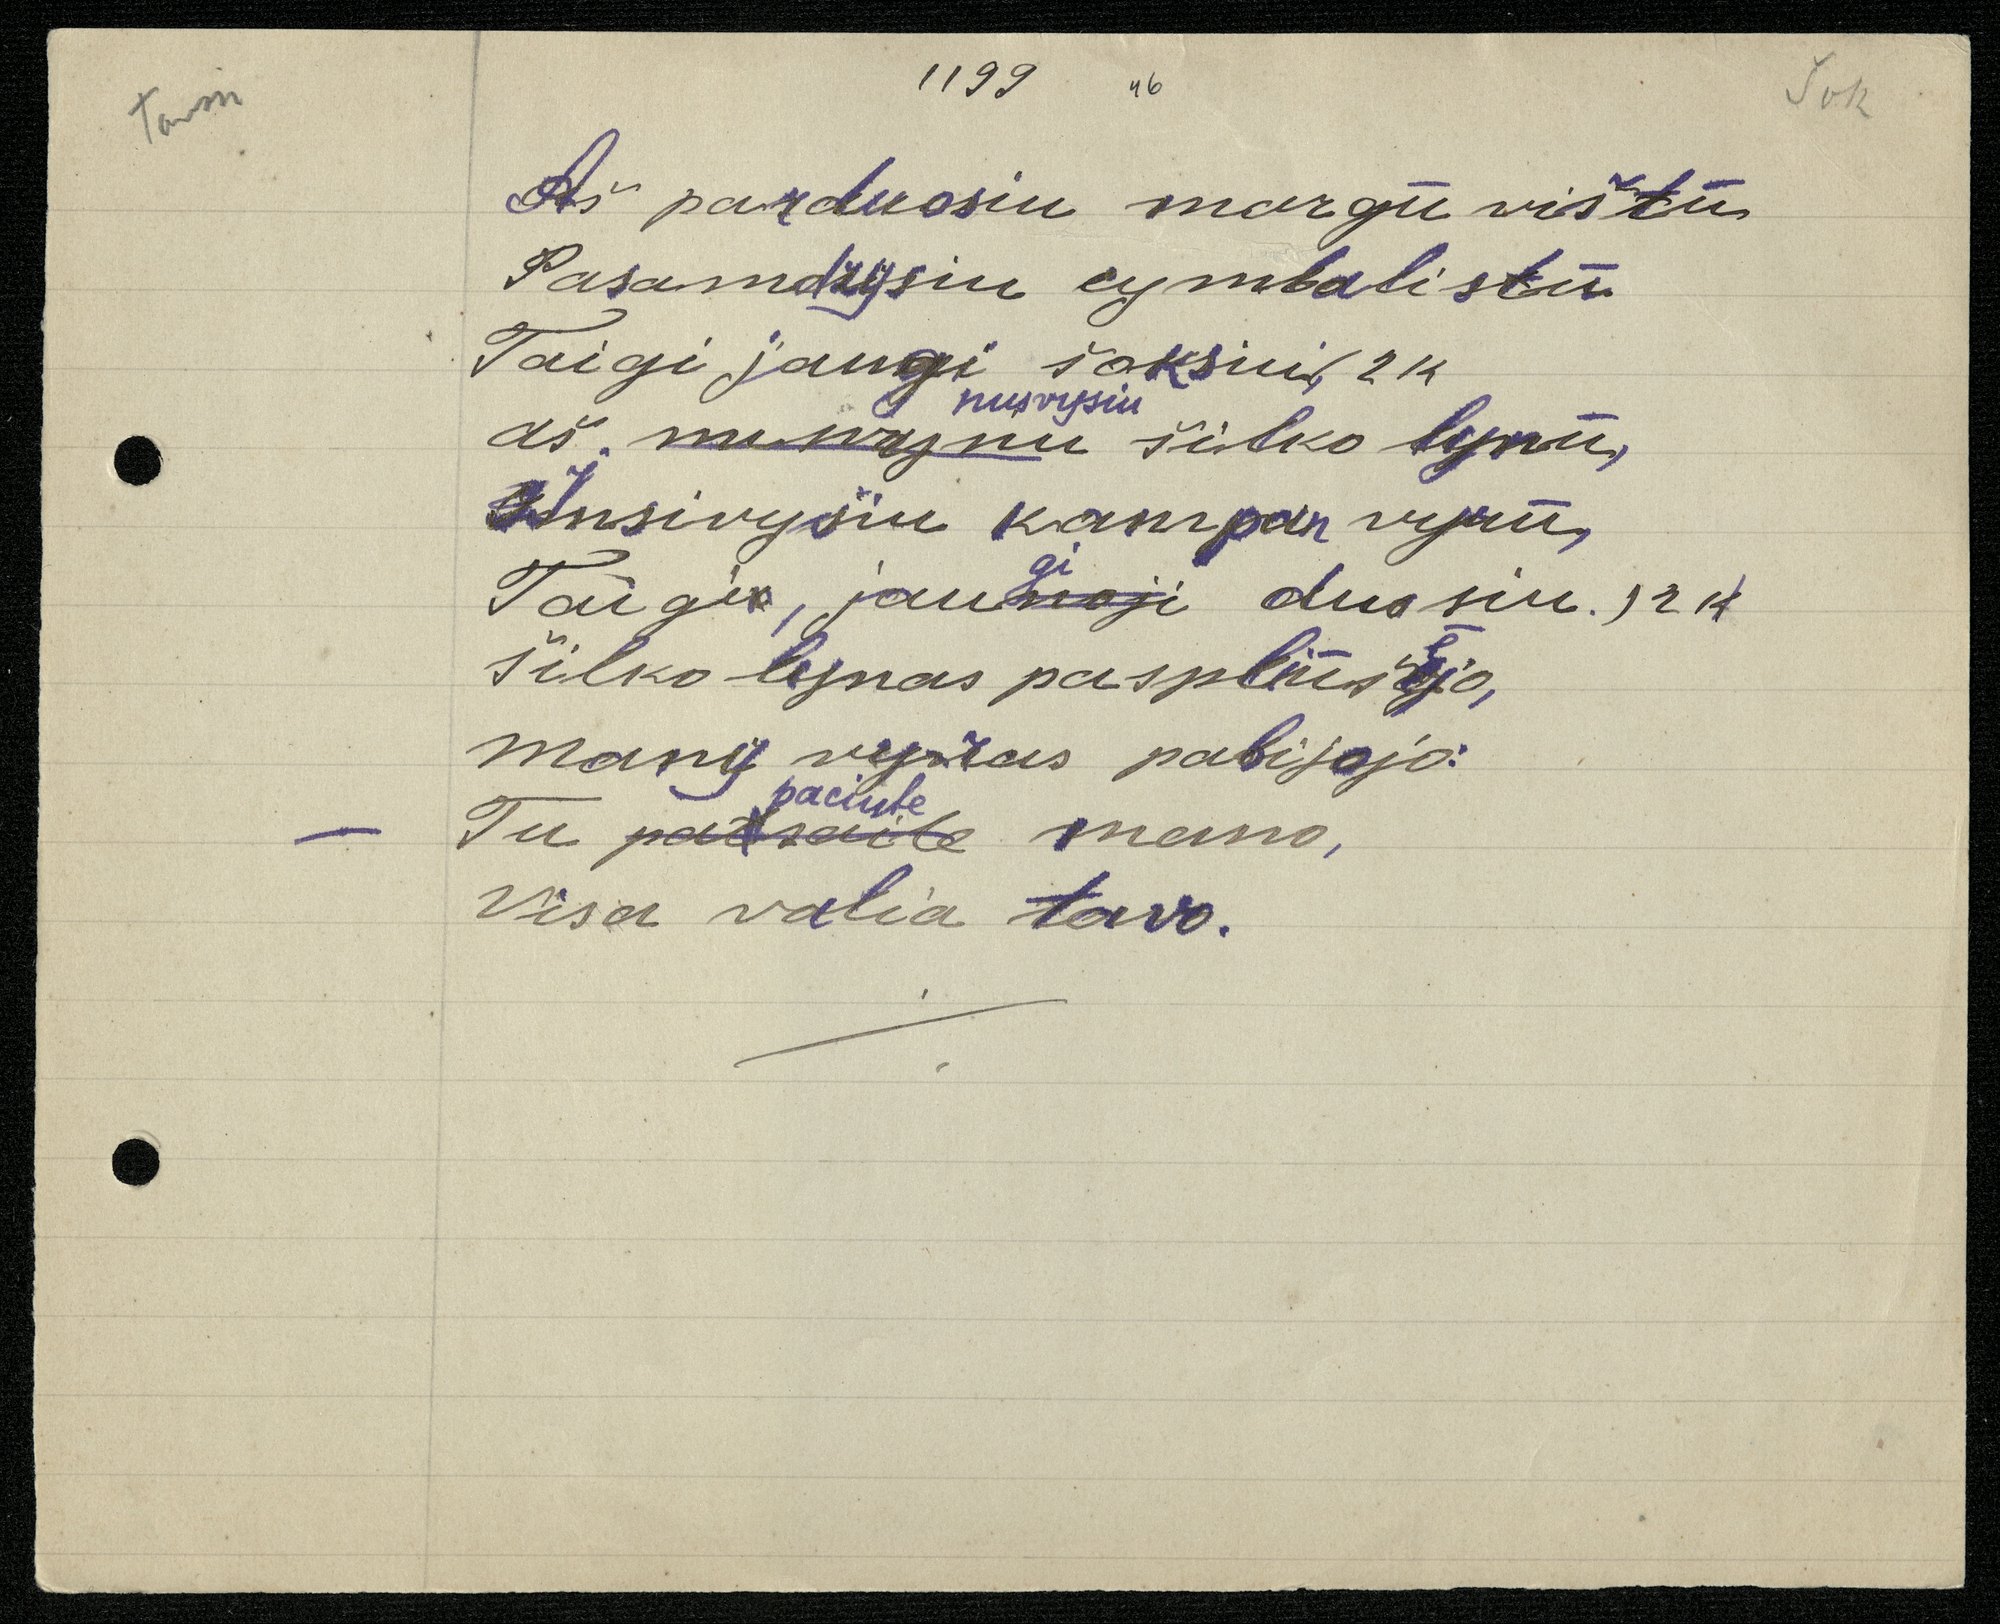 1199 46
Šok
Aš parduosiu margū vištū
Pasamdysiu cymbalistū
Taigi jaugi šoksiu, 2 k
aš nusvysiu šilko lynū,
Insivysiu kampan vyrū,
Taigi, jaugi duosiu. ) 2 k
šilko lynas pasplūšėjo,
many vyras pabijojo:
— Tu paciute mano,
Visa valia tavo.